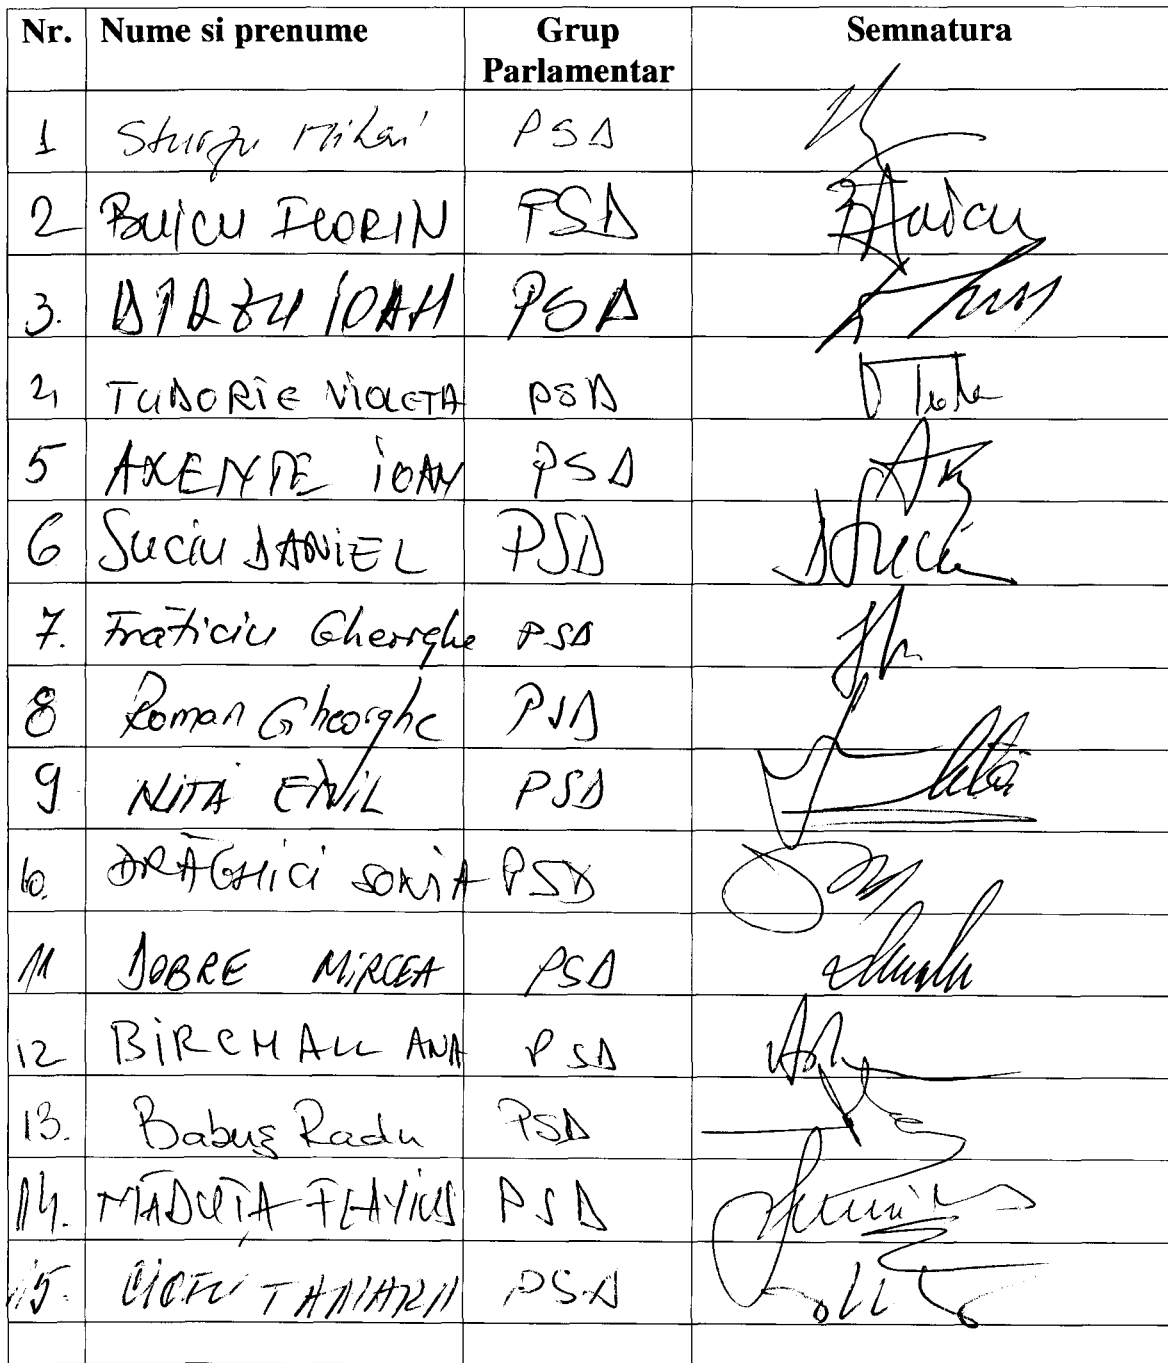 Nr. Nume si prenume Grup Parlamentar Semnatura
1 Sturzu Mihai PSD
2 Buicu FLORIN PSD BFuicu
3. DIRZU IOAN PSD
4 TUDORIE VIOLETA PSD
5 AXENTE IOAN PSD
6 Suciu DANIEL PSD DSuciu
7. Frăticiu Gheorghe PSD
8 Roman Gheorghe PSD
9 NIȚĂ EMIL PSD
10. DRĂGHICI SONIA PSD
11 DOBRE MIRCEA PSD
12 BIRCHALL ANA PSD
13. Babuș Radu PSD
14. MĂDUȚA FLAVIUS PSD
15. CIOFU TAMARA PSD